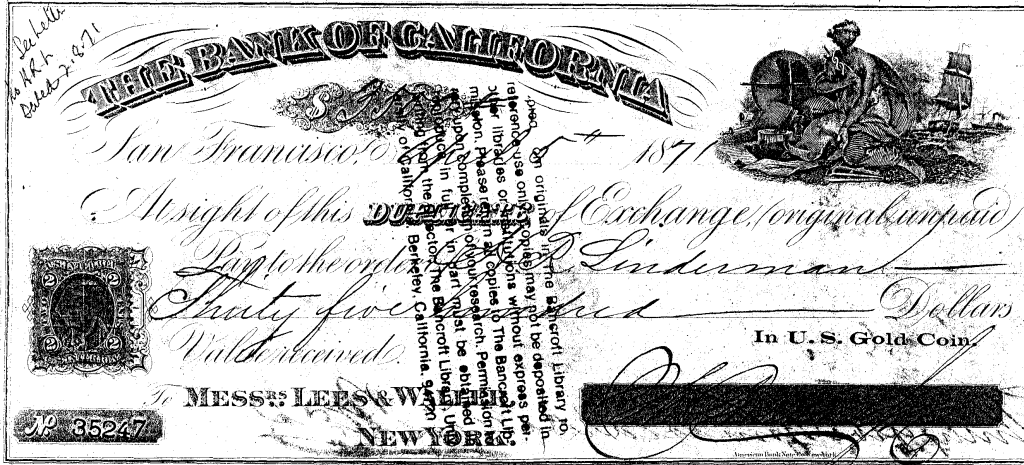 See Letter
to H.R.L.
Dated 2.8.71
THE BANK OF CALIFORNIA
$
San Francisco, 5th 1871
At sight of this DUPLICATE of Exchange, (original unpaid)
Pay to the order Linderman
Thirty five hundred Dollars
Value received
In U.S. Gold Coin.
To MESSRS LEES & WALLER
NEW YORK.
No 35247
2 2
2 2
American Bank Note Co. New York
from originals in The Bancroft Library for
reference use only. Copies may not be deposited in
other libraries or institutions without express per-
mission. Please return all copies to The Bancroft Lib-
rary upon completion of your research. Permission to
reproduce in full or in part must be obtained in
writing from the Director, The Bancroft Library, Univ
of California, Berkeley, California.